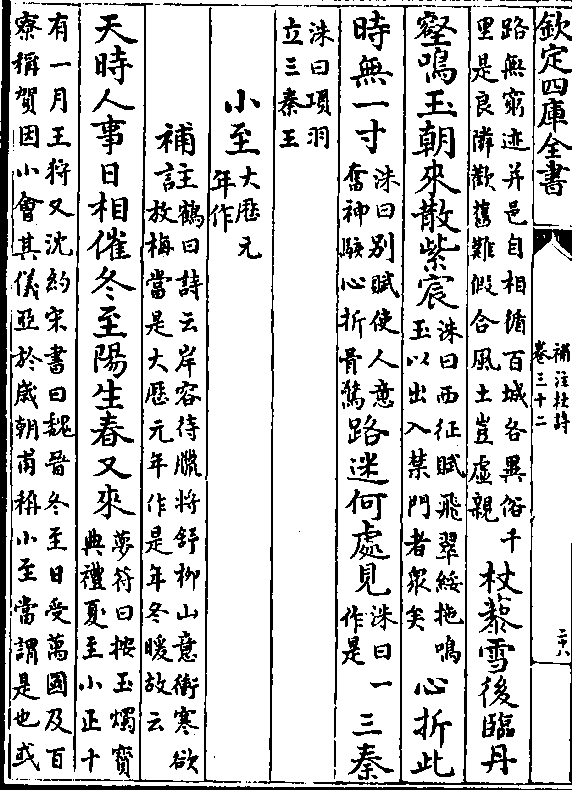 欽定四庫全書
補注杜詩
卷三十二
二十八
路無窮迹井邑自相循百城各異俗千
里是良隣歡舊難假合風土豈虛親
杖藜雪後臨丹
壑鳴玉朝來散紫宸
洙曰西征賦飛翠緌拖鳴
玉以出入某門者衆矣
心折此
時無一寸
洙曰别賦使人意
奮神駭心折骨驚
路迷何處見
洙曰一
作是
三秦
洙曰項羽
立三秦王
小至
大厯元
年作
補註
鶴曰詩云岸容待臘將舒柳山意衝寒欲
放梅當是大厯元年作是年冬暖故云
天時人事日相催冬至陽生春又來
夢符曰按玉燭寶
典禮夏至小正十
有一月王狩又沈約宋書曰魏晉冬至日受萬國及百
寮稱賀因小會其儀亞於歲朝甫稱小至當謂是也或